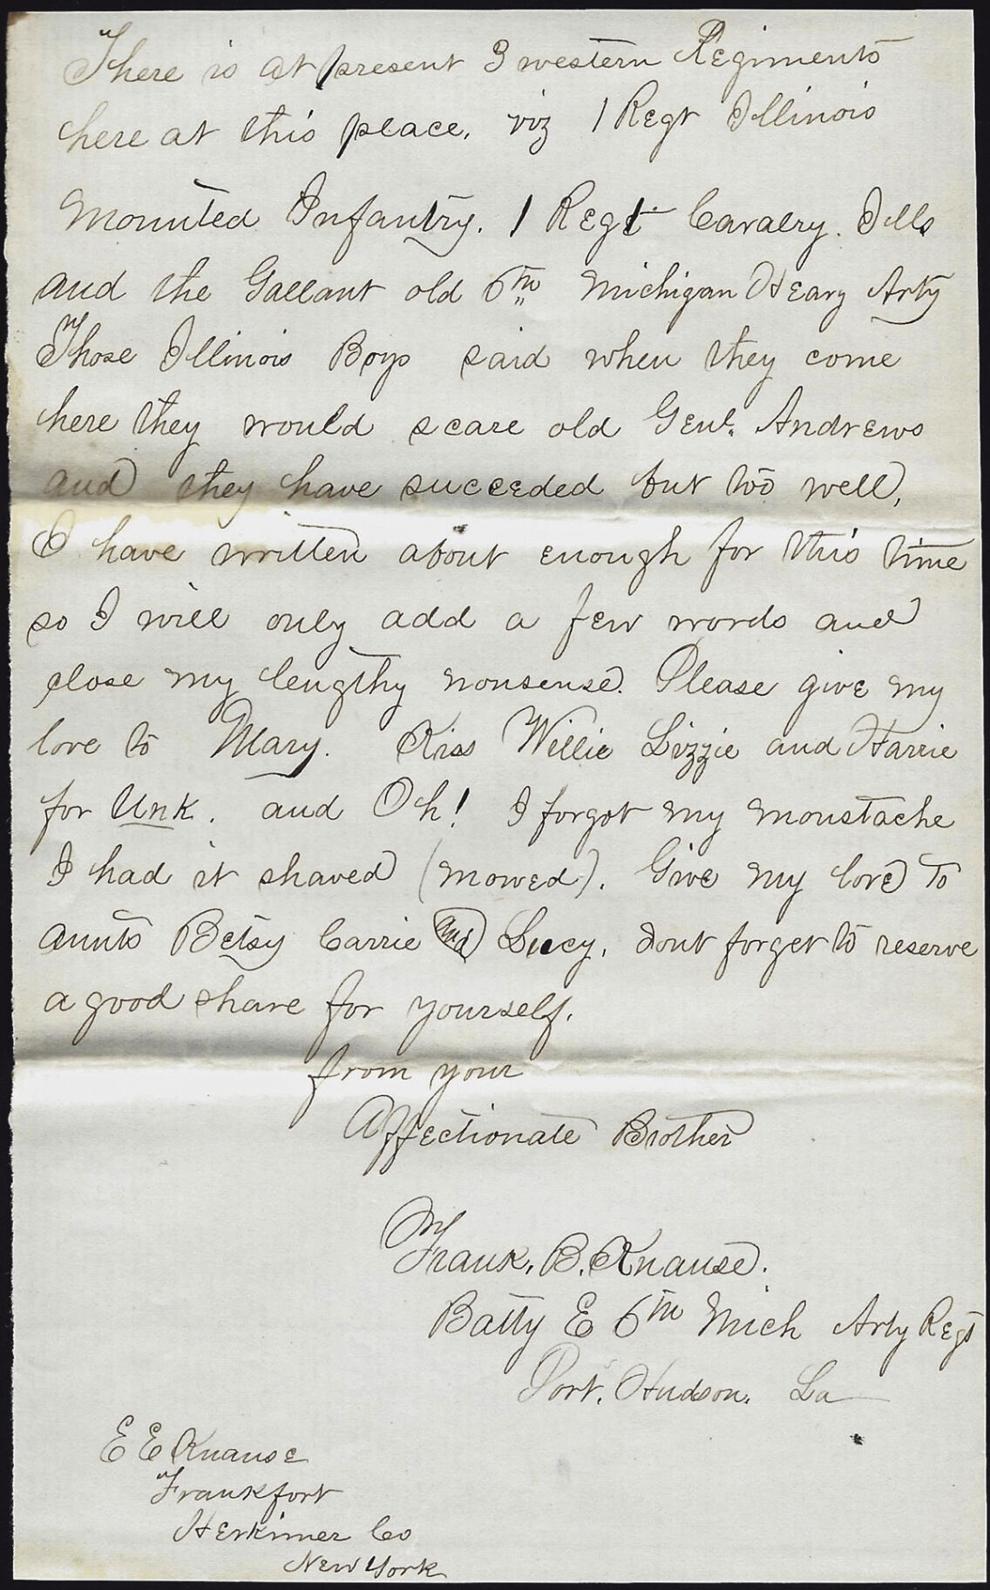 There is at present 3 western Regiments
here at this place. viz 1 Regt Illinois
Mounted Infantry. 1 Regt Cavalry. Ills
and the Gallant old 6th Michigan Heavy Arty
Those Illinois Boys said when they come
here they would scare old Genl. Andrews
and they have succeeded but too well,
I have written about enough for this time
so I will only add a few words and
close my lengthy nonsense. Please give my
love to Mary. Kiss Willie Lizzie and Harrie
for Unk. and Oh! I forgot my moustache
I had it shaved (mowed). Give my love to
aunts Betsy Carrie and Lucy, dont forget to reserve
a good share for yourself.
from your
Affectionate Brother
Frank. B. Knause.
Batty E 6th Mich Arty Regt
Port. Hudson. La
E E Knause
Frankfort
Herkimer Co
New York